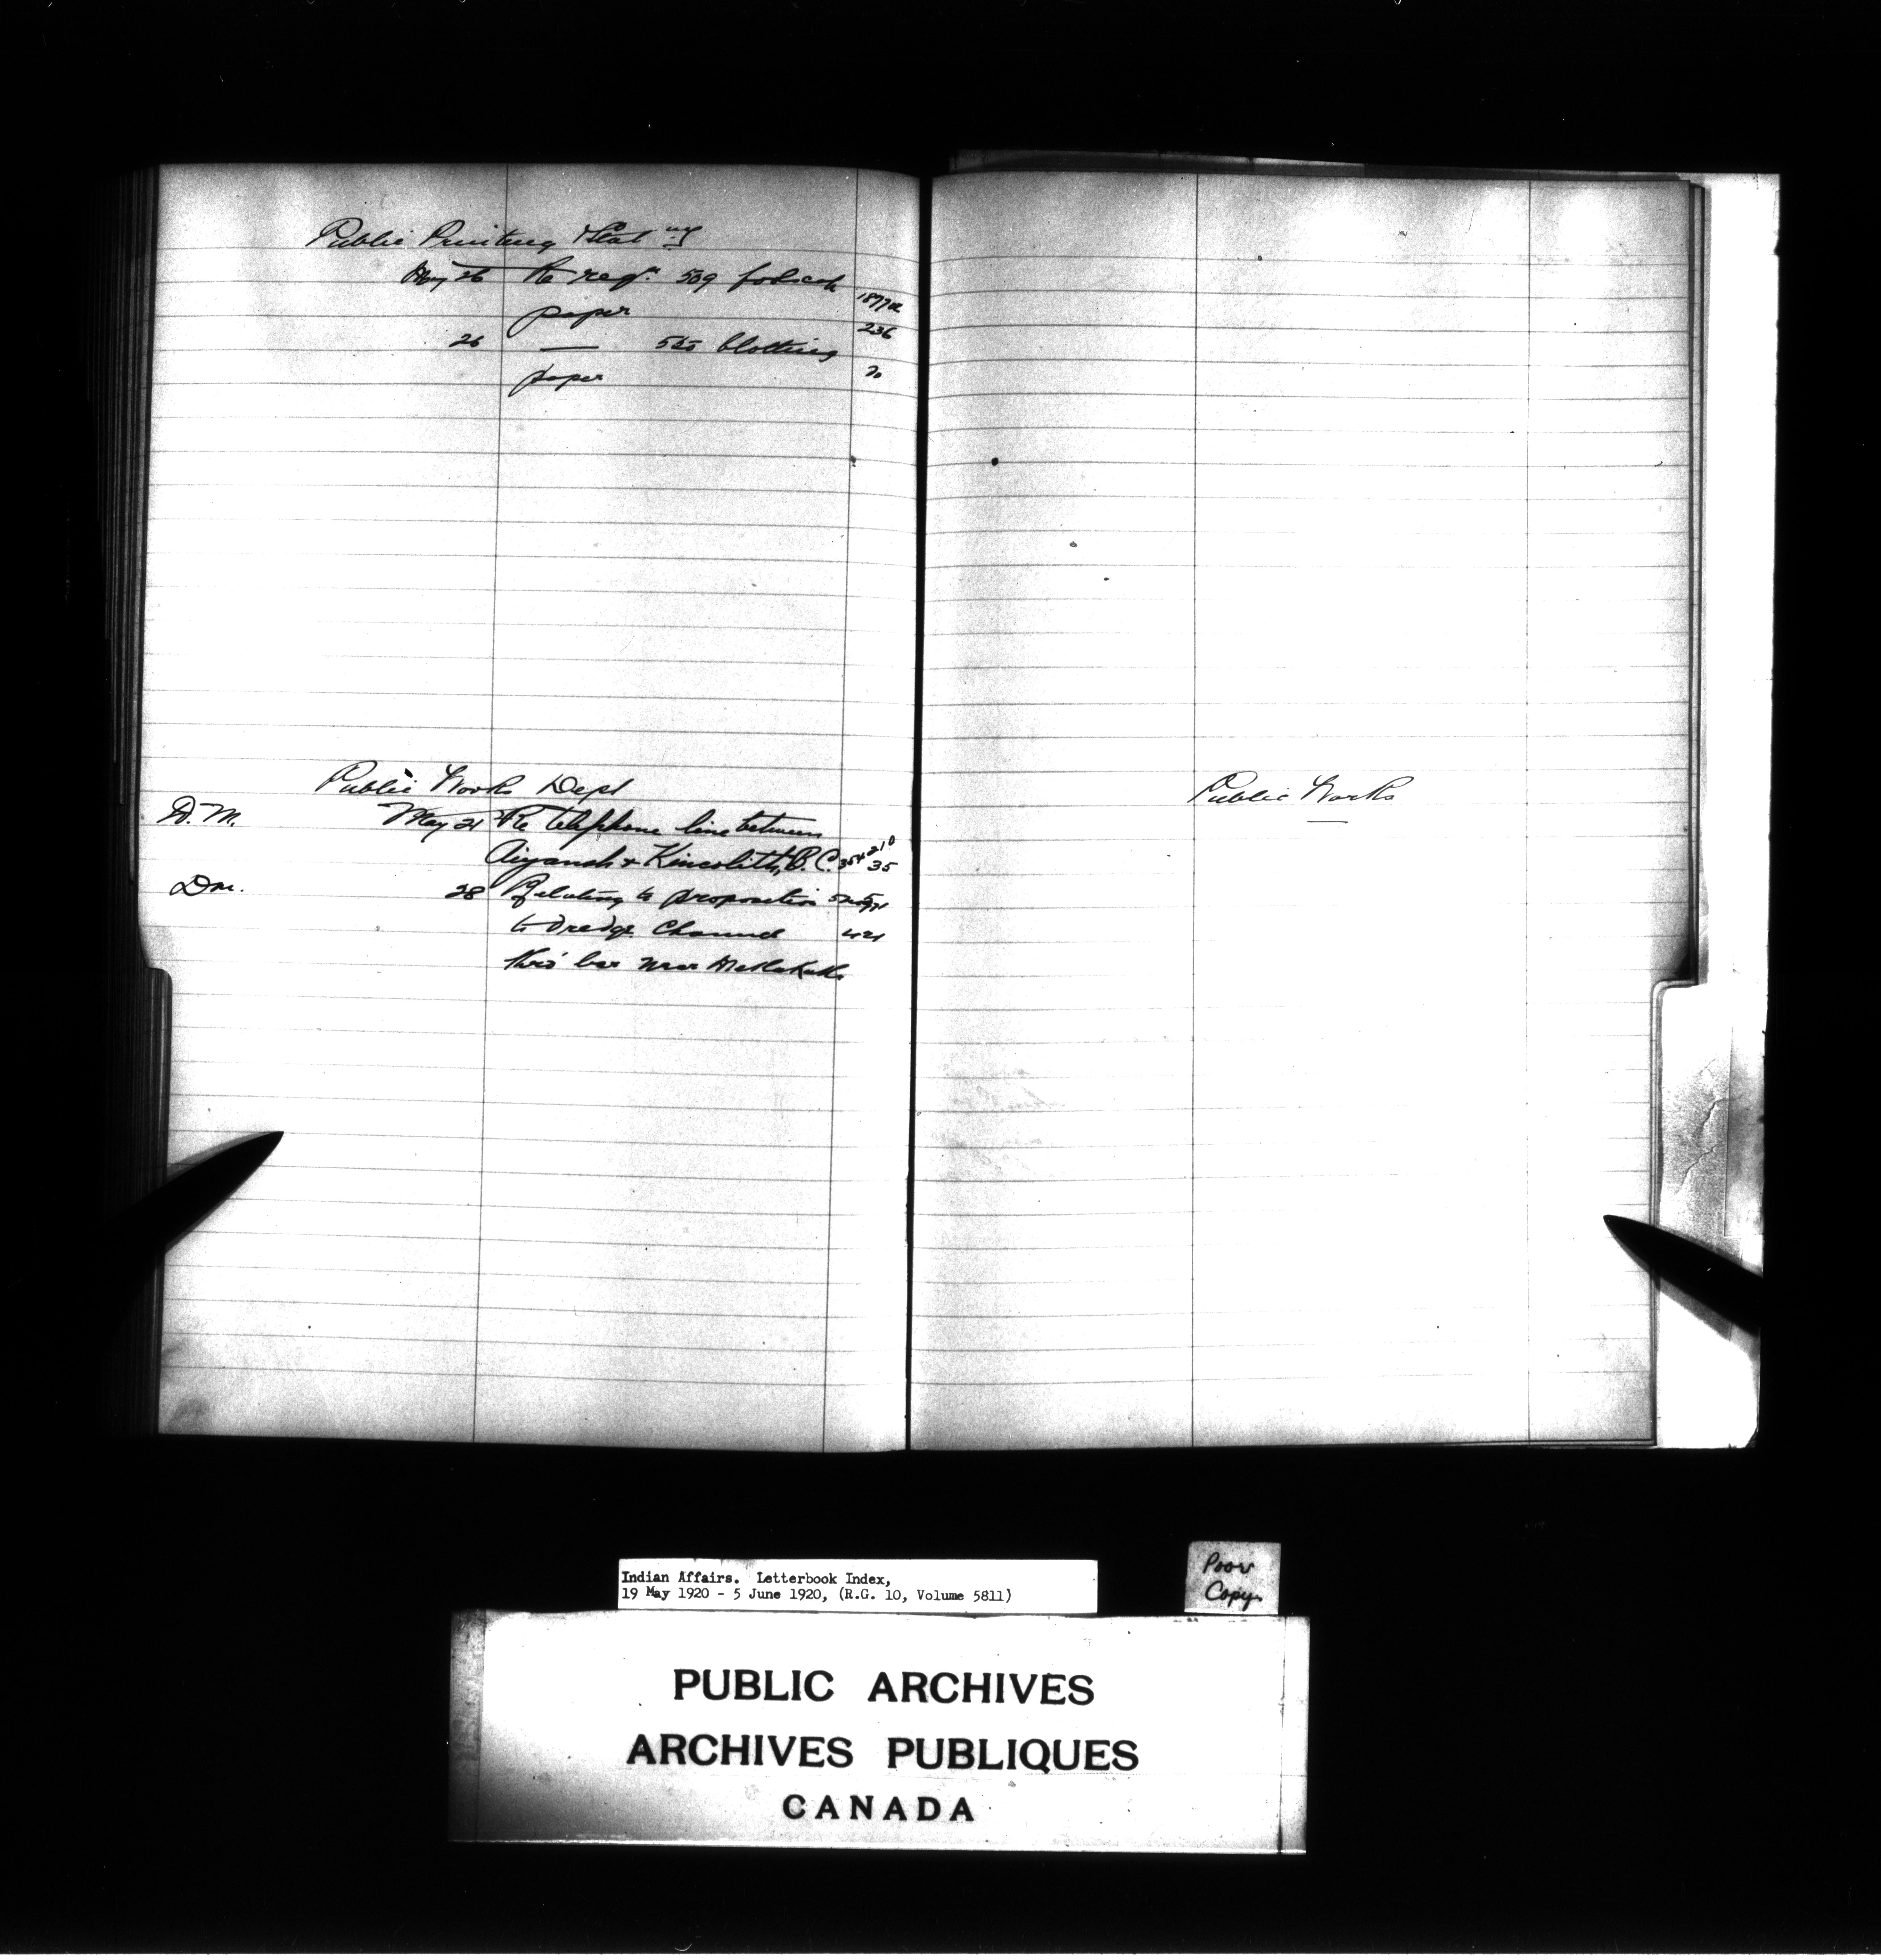 Public Printing & Stat ny
May 26 Re reqn. 509 foolscap
paper
236
26 — blotting
paper
20
Public Works Dept
D.M. May 21 Re telephone line between
Aiyansh & Kincolith, B.C.
35
Dm. 28 Relating to proposition
to dredge Channel 421
thro' bar near Metlakatla
Public Works
Indian Affairs. Letterbook Index,
19 May 1920 - 5 June 1920, (R.G. 10, Volume 5811)
Poor
Copy.
PUBLIC ARCHIVES
ARCHIVES PUBLIQUES
CANADA